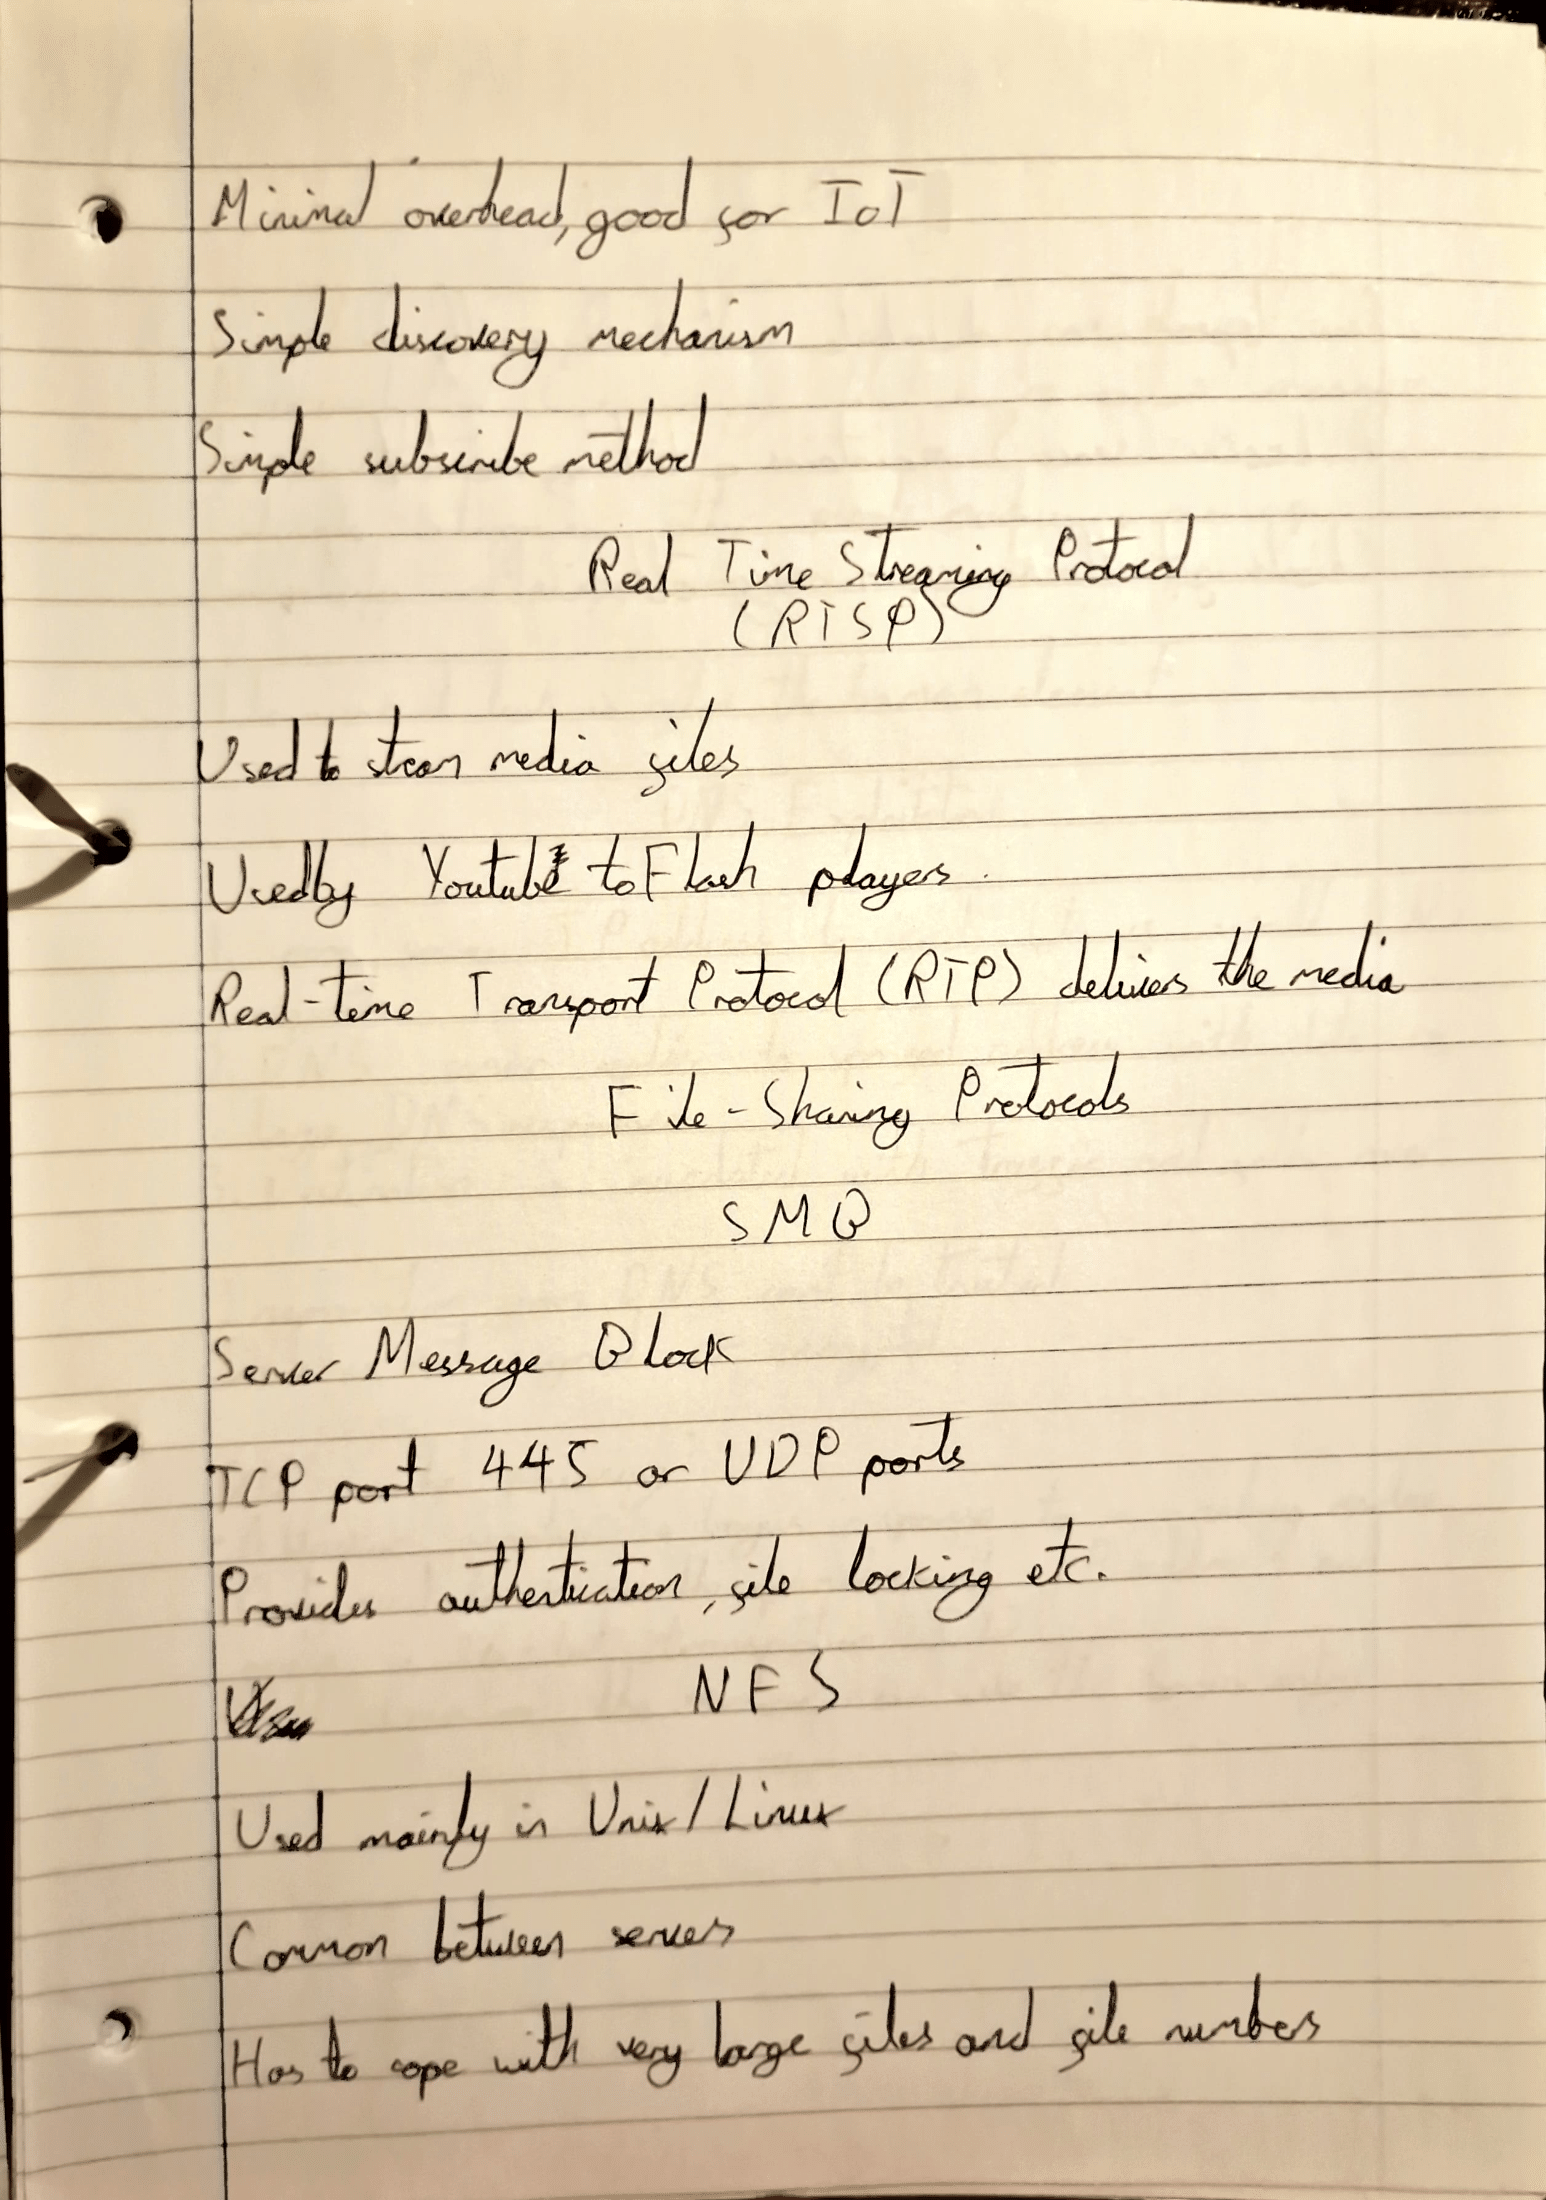 Minimal overhead, good for IoT
Simple discovery mechanism
Simple subscribe method
Real Time Streaming Protocol
(RTSP)
Used to steam media files
Used by Youtube to Flash players.
Real-time Transport Protocol (RTP) delivers the media
File-Sharing Protocols
SMB
Server Message Block
TCP port 445 or UDP ports
Provides authentication, file locking etc.
NFS
Used mainly in Unix/Linux
Common between servers
Has to cope with very large files and file numbers